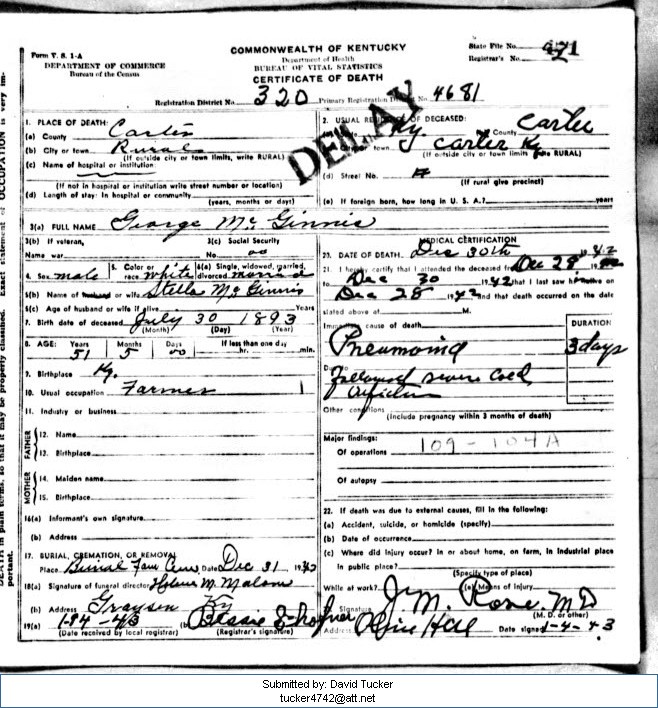 Form V. S. 1-A
COMMONWEALTH OF KENTUCKY
State File No. 471
DEPARTMENT OF COMMERCE
Department of Health
Registrar's No.
Bureau of the Census
BUREAU OF VITAL STATISTICS
CERTIFICATE OF DEATH
Registration District No. 320 Primary Registration District No. 4681
DELAY
1. PLACE OF DEATH:
(a) County Carter
(b) City or town Rural
(If outside city or town limits, write RURAL)
(c) Name of hospital or institution:
(If not in hospital or institution write street number or location)
(d) Length of stay: In hospital or community
(years, months or days)
2. USUAL RESIDENCE OF DECEASED:
Ky. County Carter
town Carter Ky
(If outside city or town limits RURAL)
(d) Street No.
(If rural give precinct)
(e) If foreign born, how long in U. S. A.? years
3(a) FULL NAME George Mc Ginnis
3(b) If veteran,
3(c) Social Security
Name war
No. no
4. Sex male 5. Color or race white 6(a) Single, widowed, married, divorced married
5(b) Name of husband or wife Stella Mc Ginnis
5(c) Age of husband or wife if alive Years
7. Birth date of deceased July 30 1893
(Month) (Day) (Year)
8. AGE: Years Months Days If less than one day
51 5 00 hr. min.
9. Birthplace Ky.
10. Usual occupation Farmer
11. Industry or business
FATHER
12. Name
13. Birthplace
MOTHER
14. Maiden name
15. Birthplace
16(a) Informant's own signature
(b) Address
17. BURIAL, CREMATION, OR REMOVAL
Place Burial Fam Cem Date Dec 31 1942
18(a) Signature of funeral director M. Malone
(b) Address Grayson Ky
19(a) 1-24-43 (b) Bessie
(Date received by local registrar) (Registrar's signature)
MEDICAL CERTIFICATION
20. DATE OF DEATH. Dec 30th 1942
21. I hereby certify that I attended the deceased from Dec 28 19
to Dec 30 1942 that I last saw h alive on
Dec 28 1942 and that death occurred on the date
stated above at M.
Immediate cause of death
DURATION
Pneumonia 3 days
followed severe cold
Other conditions
(Include pregnancy within 3 months of death)
Major findings:
109 - 104A
Of operations
Of autopsy
22. If death was due to external causes, fill in the following:
(a) Accident, suicide, or homicide (specify)
(b) Date of occurrence
(c) Where did injury occur? In or about home, on farm, in industrial place
In public place?
(Specify type of place)
While at work? (e) Means of injury
Signature J. M. Rose M.D.
(M. D. or other)
Address Olive Hill Date signed 1-4-43
EXACT statement of OCCUPATION is very im-
DEATH in plain terms, so that it may be properly classified.
portant.
Submitted by: David Tucker
tucker4742@att.net